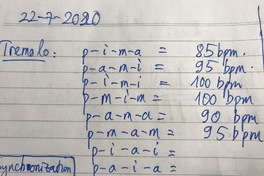 22-7-2020
Tremolo: p-i-m-a = 85 bpm.
p-a-m-i = 95 bpm.
p-i-m-i = 100 bpm
p-m-i-m = 100 bpm
p-a-m-a = 90 bpm
p-m-a-m = 95 bpm.
p-i-a-i =
p-a-i-a =
ynchronization